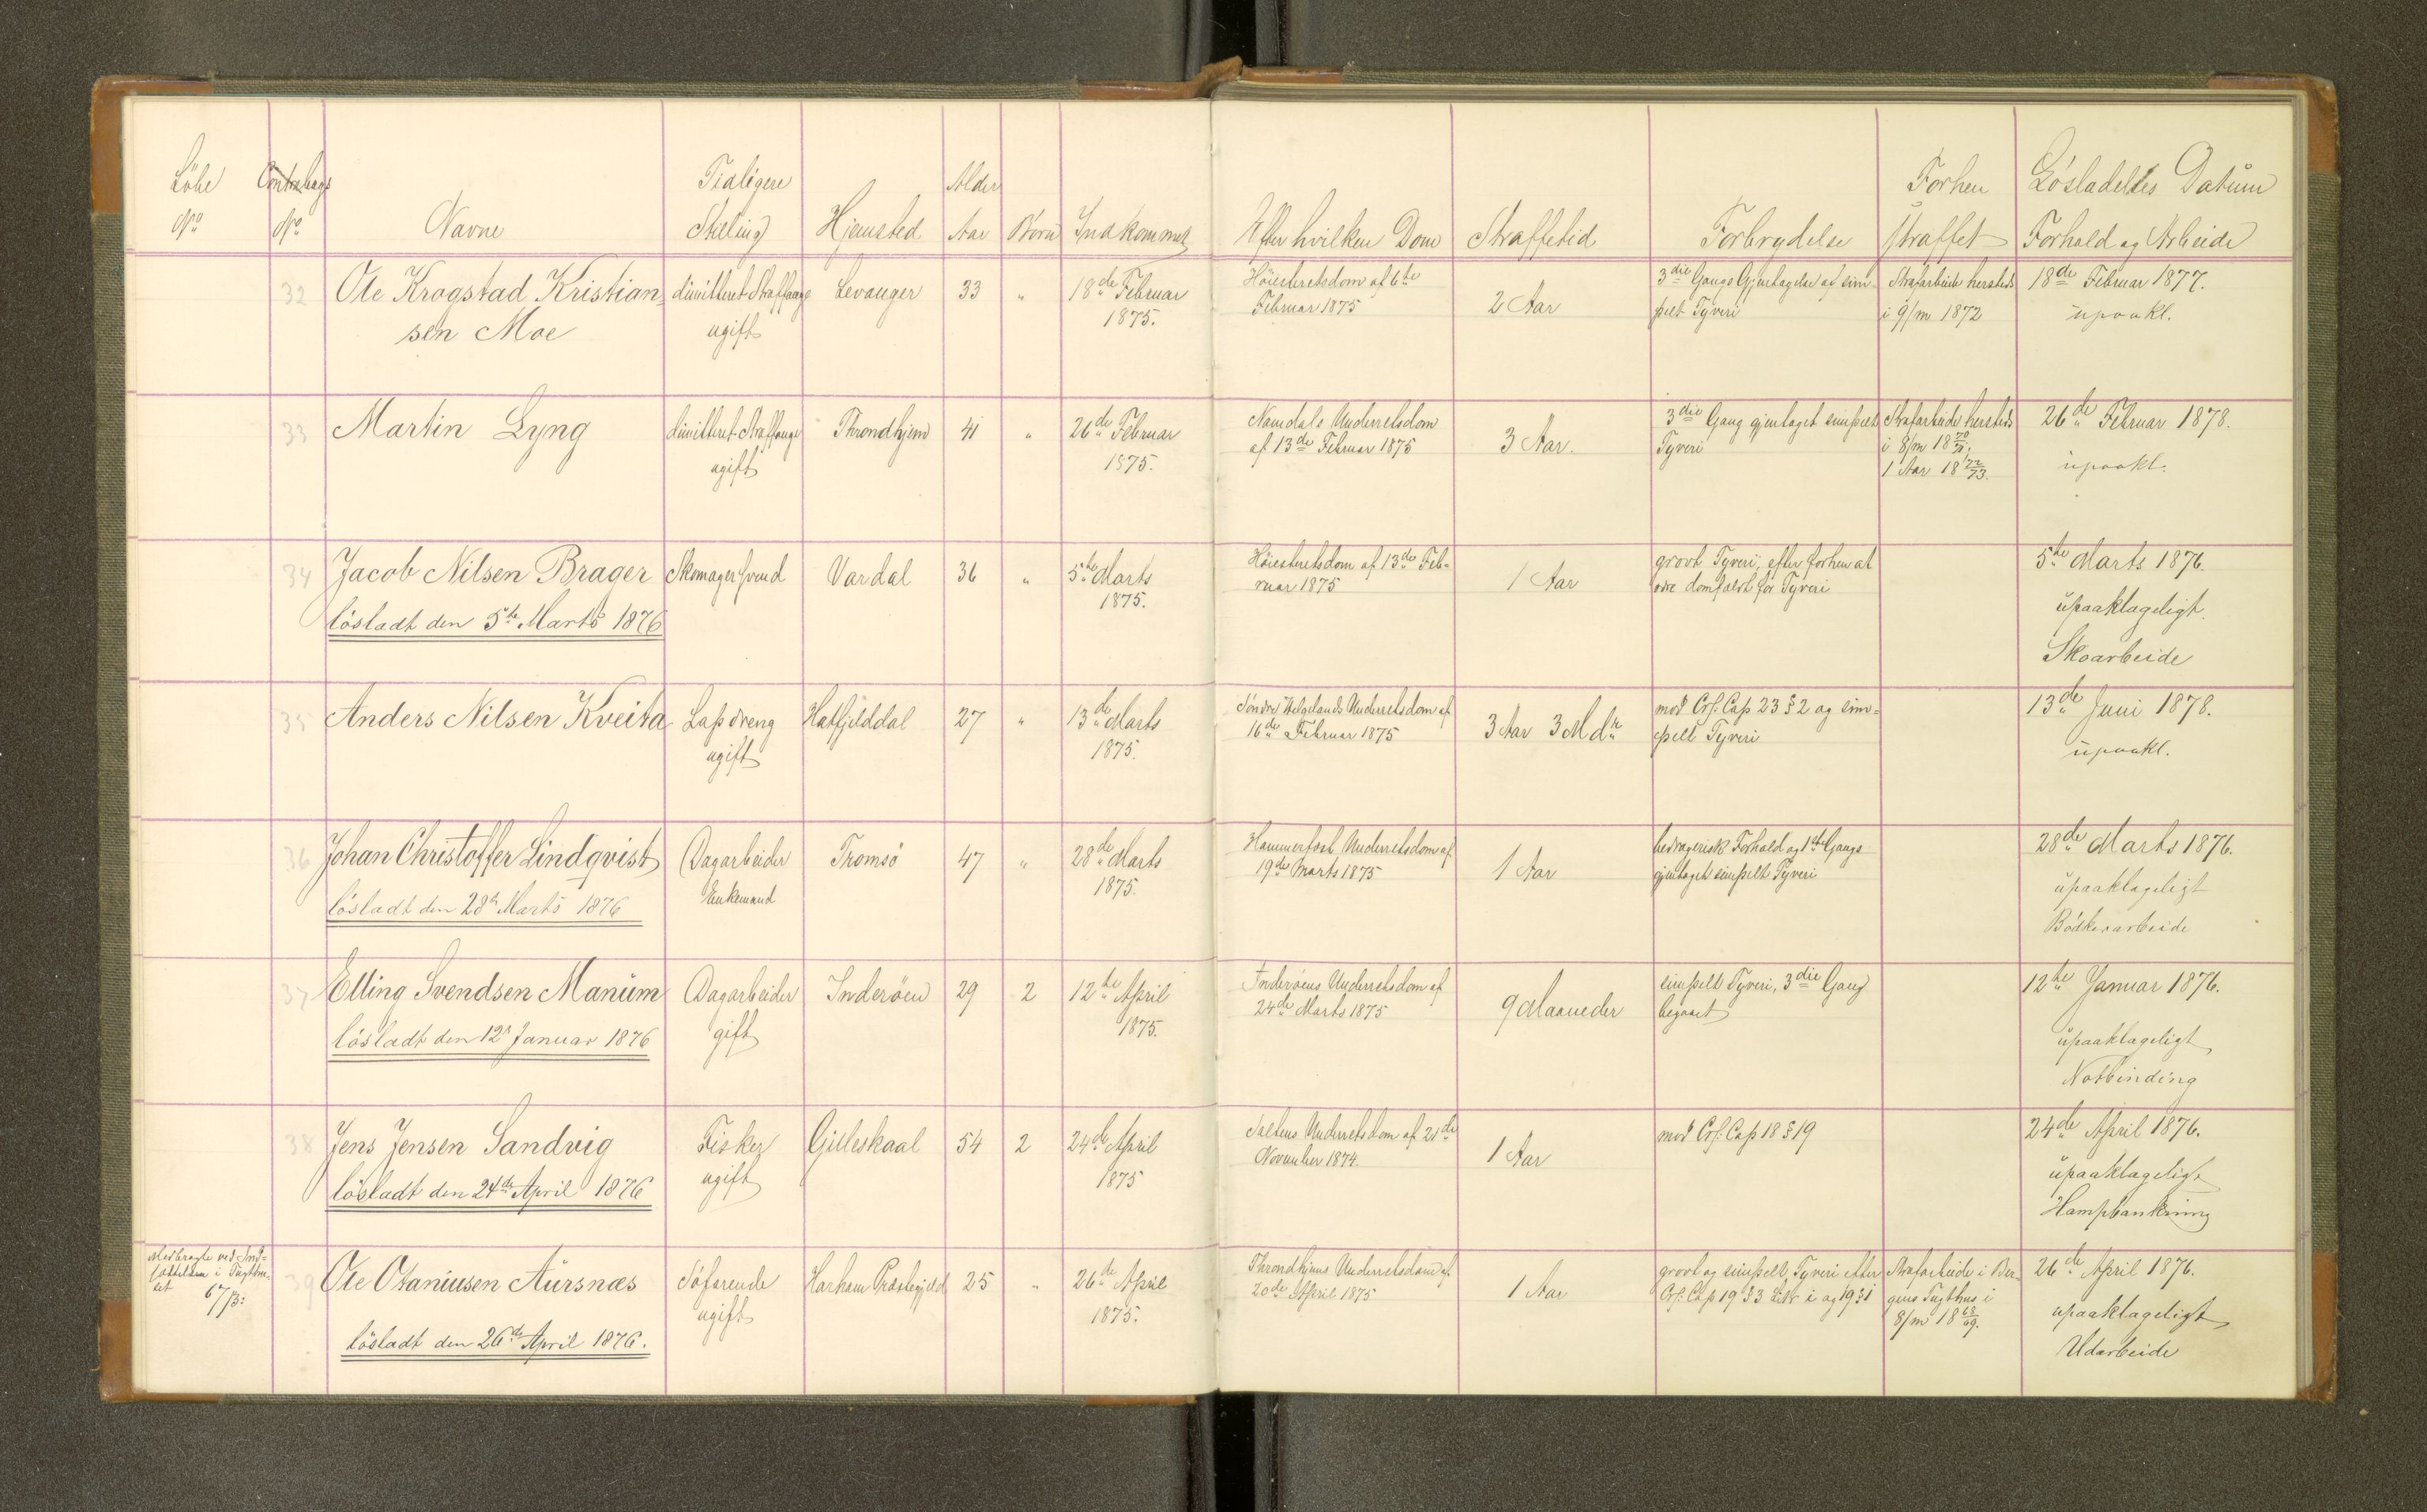 Löbe No
Contrabogs No
Navne
Tidligere Stilling
Hjemsted
Alder Aar
Börn
Indkommet
Efter hvilken Dom
Straffetid
Forbrydelse
Forhen straffet
Lösladelses Datum
Forhold og Arbeide
32 Ole Krogstad Kristian=
sen Moe
dimitteret Straffange
ugift
Levanger
33
"
18de Februar
1875.
Höiesteretsdom af 6te
Februar 1875
2 Aar
3die Gangs Gjentagelse af sim-
pelt Tyveri
Strafarbeide hersteds
i 9/m 1872
18de Februar 1877.
upaakl.
33 Martin Lyng
dimitteret Straffange
ugift
Throndhjem
41
"
26de Februar
1875.
Namdals Underretsdom
af 13de Februar 1875
3 Aar.
3die Gang gjentaget simpelt
Tyveri
Strafarbeide hersteds
i 8/m 18 70/71;
1 Aar 18 72/73.
26de Februar 1878.
upaakl.
34 Jacob Nilsen Brager
lösladt den 5te Marts 1876
Skomagersvend
Vardal
36
"
5te Marts
1875.
Höiesteretsdom af 13de Feb-
ruar 1875
1 Aar
grovt Tyveri, efter forhen at
være domfældt for Tyveri
5te Marts 1876.
upaaklageligt.
Skoarbeide
35 Anders Nilsen Kveita
Lapdreng
ugift
Hatfjelddal
27
"
13de Marts
1875.
Söndre Helgelands Underretsdom af
16de Februar 1875
3 Aar 3 Mdr
mod Crl. Cap 23 § 2 og sim=
pelt Tyveri
13de Juni 1878.
upaakl.
36 Johan Christoffer Lindqvist
lösladt den 28de Marts 1876
Dagarbeider
Enkemand
Tromsö
47
"
28de Marts
1875.
Hammerfest Underretsdom af
19de Marts 1875
1 Aar
bedragerisk Forhold og 1ste Gangs
gjentaget simpelt Tyveri
28de Marts 1876.
upaaklageligt
Bödkerarbeide
37 Elling Svendsen Manum
lösladt den 12te Januar 1876
Dagarbeider
gift
Inderöen
29
2
12te April
1875.
Inderöens Underretsdom af
24de Marts 1875
9 Maaneder
simpelt Tyveri, 3die Gang
begaaet
12te Januar 1876.
upaaklageligt
Notbinding
38 Jens Jensen Sandvig
lösladt den 24de April 1876
Fisker
ugift
Gilleskaal
54
2
24de April
1875
Saltens Underretsdom af 21de
November 1874.
1 Aar
mod Crl. Cap 18 § 19
24de April 1876.
upaaklageligt
Hampbankning
Medbragte ved Ind=
sættelsen i Tugthu-
set 67/3:
39 Ole Otaniusen Aursnæs
lösladt den 26de April 1876.
Söfarende
ugift
Harham Præstegjeld
25
"
26de April
1875.
Throndhjems Underretsdom af
20de April 1875
1 Aar
grovt og simpelt Tyveri efter
Crl. Cap 19 § 3 Litr i og 19 § 1
Strafarbeide i Ber-
gens Tugthus i
8/m 18 68/69.
26de April 1876.
upaaklageligt
Udarbeide